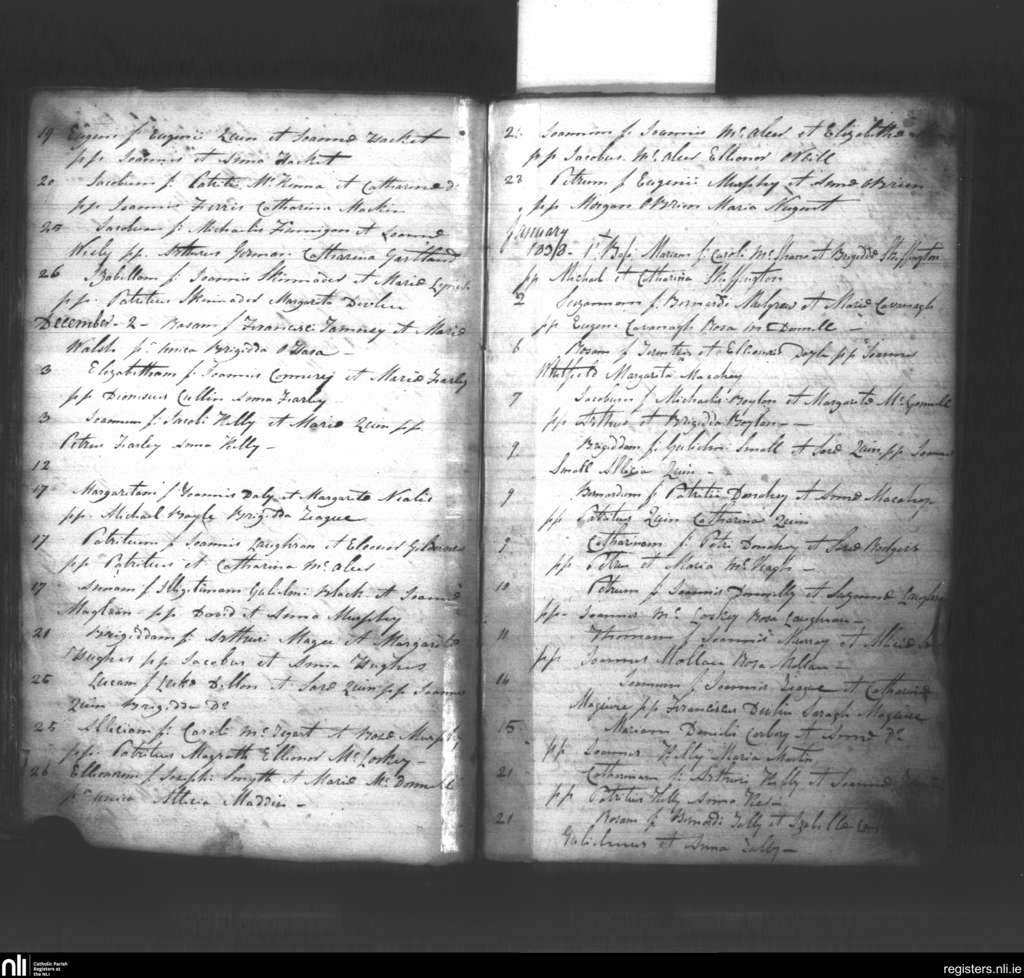 19 Eugeni f. Eugenii Quin et Joanne Hacket
pp Joannis et Anna Hacket
20 Jacobum f. Patritii McKenna et Catharine Do
pp Joannis Ferris Catharina Mackin
25 Jacobum f. Michaelis Finnigan et Joanne
pp. Arthurus Gorman Catharina Gartland
26 Izabellam f. Joannis Skinnader et Marie Lynch
pp. Patritius Skinnader Margarita Devlin
December - 2 - Rosam f. Francisci et Marie
Walsh pa unica Brigidda O'Hara -
3 Elizabitham f. Joannis et Marie Farley
pp Dionisius Cullin Anna Farley -
3 Joannem f. Jacobi Kelly et Marie Quin pp
Petrus Farley Anna Kelly -
12
17 Margaritam f. Joannis Daly et Margarite
pp. Michael Boyle Brigidda Teague
17 Patritium f. Joannis Laughran et Eleonor
pp Patritius et Catharina McAleer
17 Annam f. Illigitimam Gulielmi Black et Joanne
pp. David et Anna Murphy
21 Brigiddam f. Arthuri Magee et Margarite
Hughes pp Jacobus et Anna Hughes
25 Lucam f. Luke Dillon et Sare Quin pp Joannes
Quin Brigidda Do
25 Alliciam f. Caroli et Rose Murphy
pp. Patritius Magrath Ellionor McCorkey -
26 Ellionorem f. Josephi Smyth et Marie McDonnell
pa unica Allicia Maddin -
2 Joannem f. Joannis McAleer et Elizabithe
pp Jacobus McAleer Ellionor O'Neill
23 Petrum f. Eugenii Murphy et Anne OBrien
pp Morgan OBrien Maria Nugent
January
1838 - 1st Bap. Mariam f. Caroli McShane et Brigidde Skeffington
pp Michael et Catharina Skeffington
2 Suzannam f. Bernardi Mulgrew et Marie Cavanagh
pp Eugene Cavanagh Rosa McDonnell -
6 Rosam f. et Ellionore Doyle pp Joannes
Margarita Macahey
7 Jacobum f. Michaelis Boylan et Margarite McConnell
pp Arthur et Brigidda Boylan -
9 Brigiddam f. Gulielmi Small et Sare Quin pp Joannes
Small Allicia Quin -
9 Bernardum f. Patritii Donahey et Anne Macahey
pp Patritius Quin Catharina Quin
9 Catharinam f. Petri Donahey et Sare Rodgers
pp Petrus et Maria McVeagh -
10 Petrum f. Joannis Donnelly et Suzanne Laughran
pp. Joannis McCorkey Rosa Laughran -
11 Thomam f. Joannis Murray et Allicie
pp Joannes Mallon Rosa Mallon -
14 Joannem f. Joannis Teague et Catharine
Maguire pp Franciscus Devlin Saragh Maguire
15 Mariam Danielis Corbry et Anne Do
pp. Joannes Kelly Maria Martin
21 Catharinam f. Arthuri Kelly et Joanne
pp Patritius Kelly Anna
21 Rosam f. Bernardi Tally et Izabelle
Gulielmus et Anna Tally -
nli Catholic Parish
Registers at
the NLI
registers.nli.ie